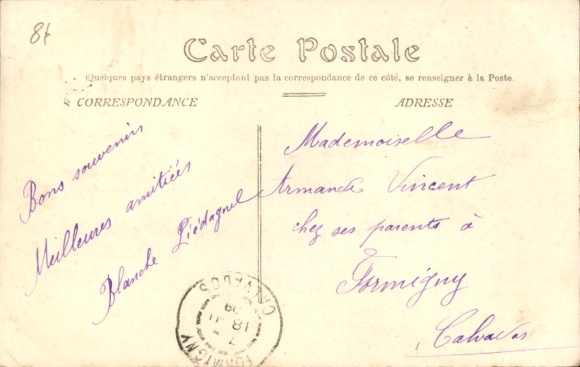 8f
Carte Postale
Quelques pays étrangers n'acceptant pas la correspondance de ce côté, se renseigner à la Poste.
CORRESPONDANCE
ADRESSE
Bons souvenirs
Meilleures amitiés
Blanche Piédagnel
Mademoiselle
Armande Vincent
chez ses parents à
Formigny
Calvados
FORMIGNY
CALVADOS
18
09